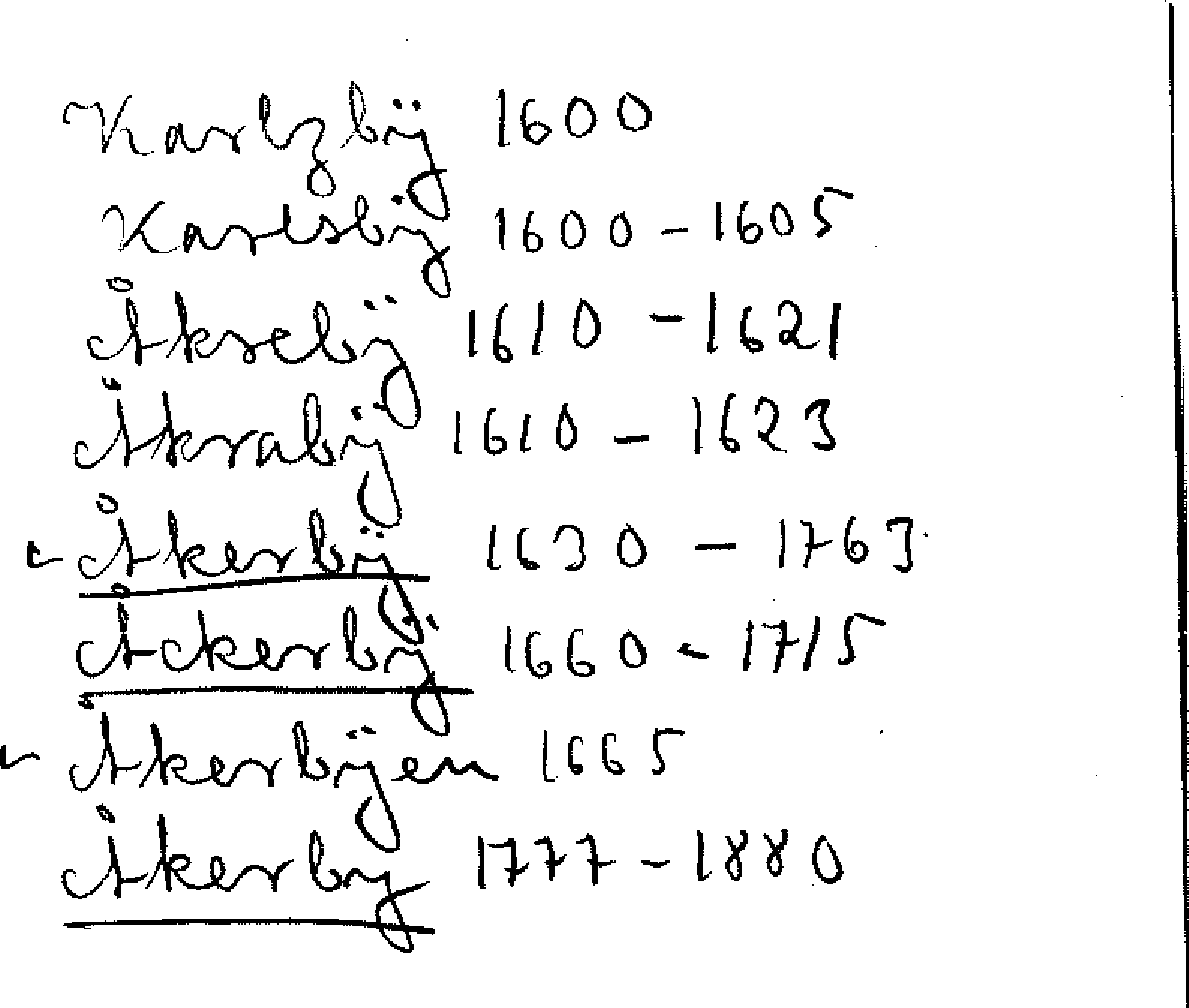 Karlzbÿ 1600
Karlsbÿ 1600 - 1605
Åkrebÿ 1610 - 1621
Åkrabÿ 1610 - 1623
Åkerbÿ 1630 - 1763
Åckerbÿ 1660 - 1715
Åkerbÿen 1665
Åkerby 1777 - 1880